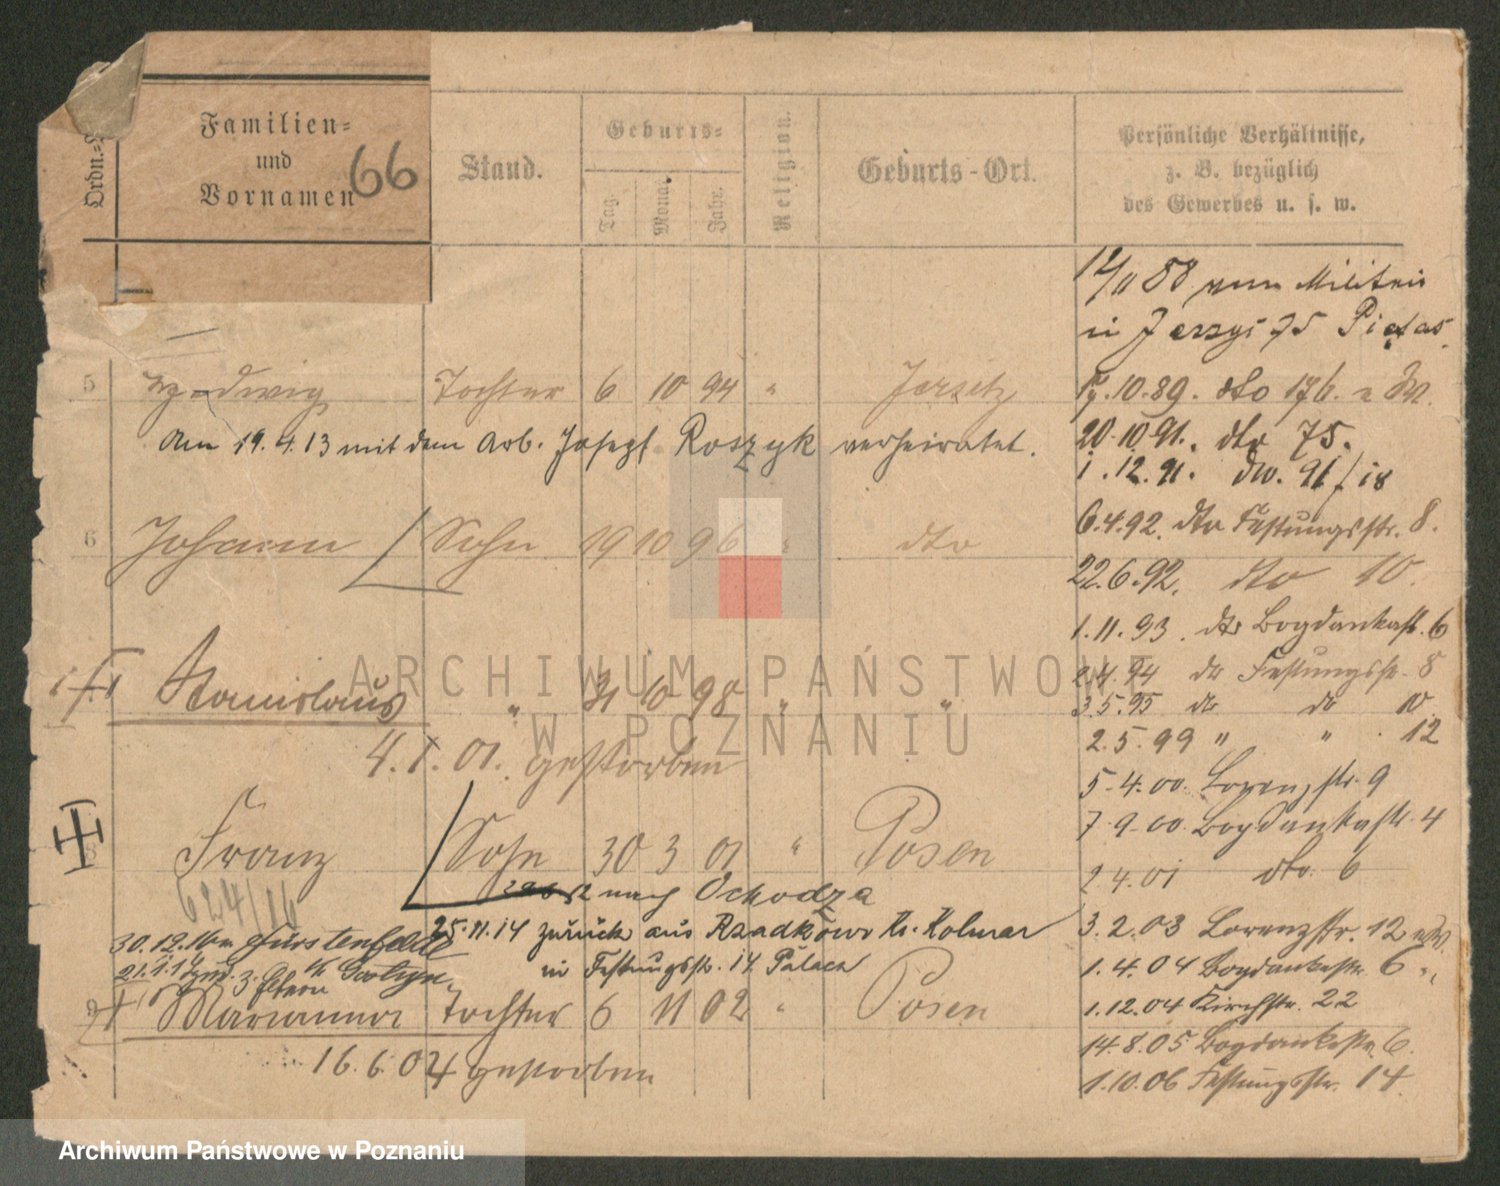 Ordn.-
Familien-
und
Vornamen
66
Stand.
Geburts-
Tag.
Monat.
Jahr.
Religion.
Geburts-Ort.
Persönliche Verhältnisse,
z. B. bezüglich
des Gewerbes u. s. w.
88 vom Militair
in Jerzyc 75
5 Hedwig Tochter 6 10 94 " Jersitz
Am 19.4.13 mit dem Arb. Josef Roszyk verheiratet.
6 Johann Sohn 19 10 96 " dto
Stanislaus " 31 10 98 " "
4.1.01. gestorben
8 Franz Sohn 30 3 01 " Posen
624/16
12 nach Ochodza
25.11.14 zurück aus Rzadkowo Kr. Kolmar
in Festungsstr. 14
30.12.16 Fürstenfelde
z. Eltern
9 Marianna Tochter 6 11 02 " Posen
16.6.04 gestorben
17.10.89. dto 176.
20.10.91. dto 75.
1.12.91. 91/18
6.4.92. dto Festungsstr. 8.
22.6.92. dto 10.
1.11.93. dto Bogdankastr. 6
2.4.94 do Festungsstr. 8
3.5.95 do do 10
2.5.99 " " 12
5.4.00. Lorenzstr. 9
7.9.00. Bogdankastr. 4
2.4.01 dto. 6
3.2.03 Lorenzstr. 12
1.4.04 Bogdankastr. 6
1.12.04 Kirchstr. 22
14.8.05 Bogdankastr. 6.
1.10.06 Festungsstr. 14
ARCHIWUM PAŃSTWOWE
W POZNANIU
Archiwum Państwowe w Poznaniu